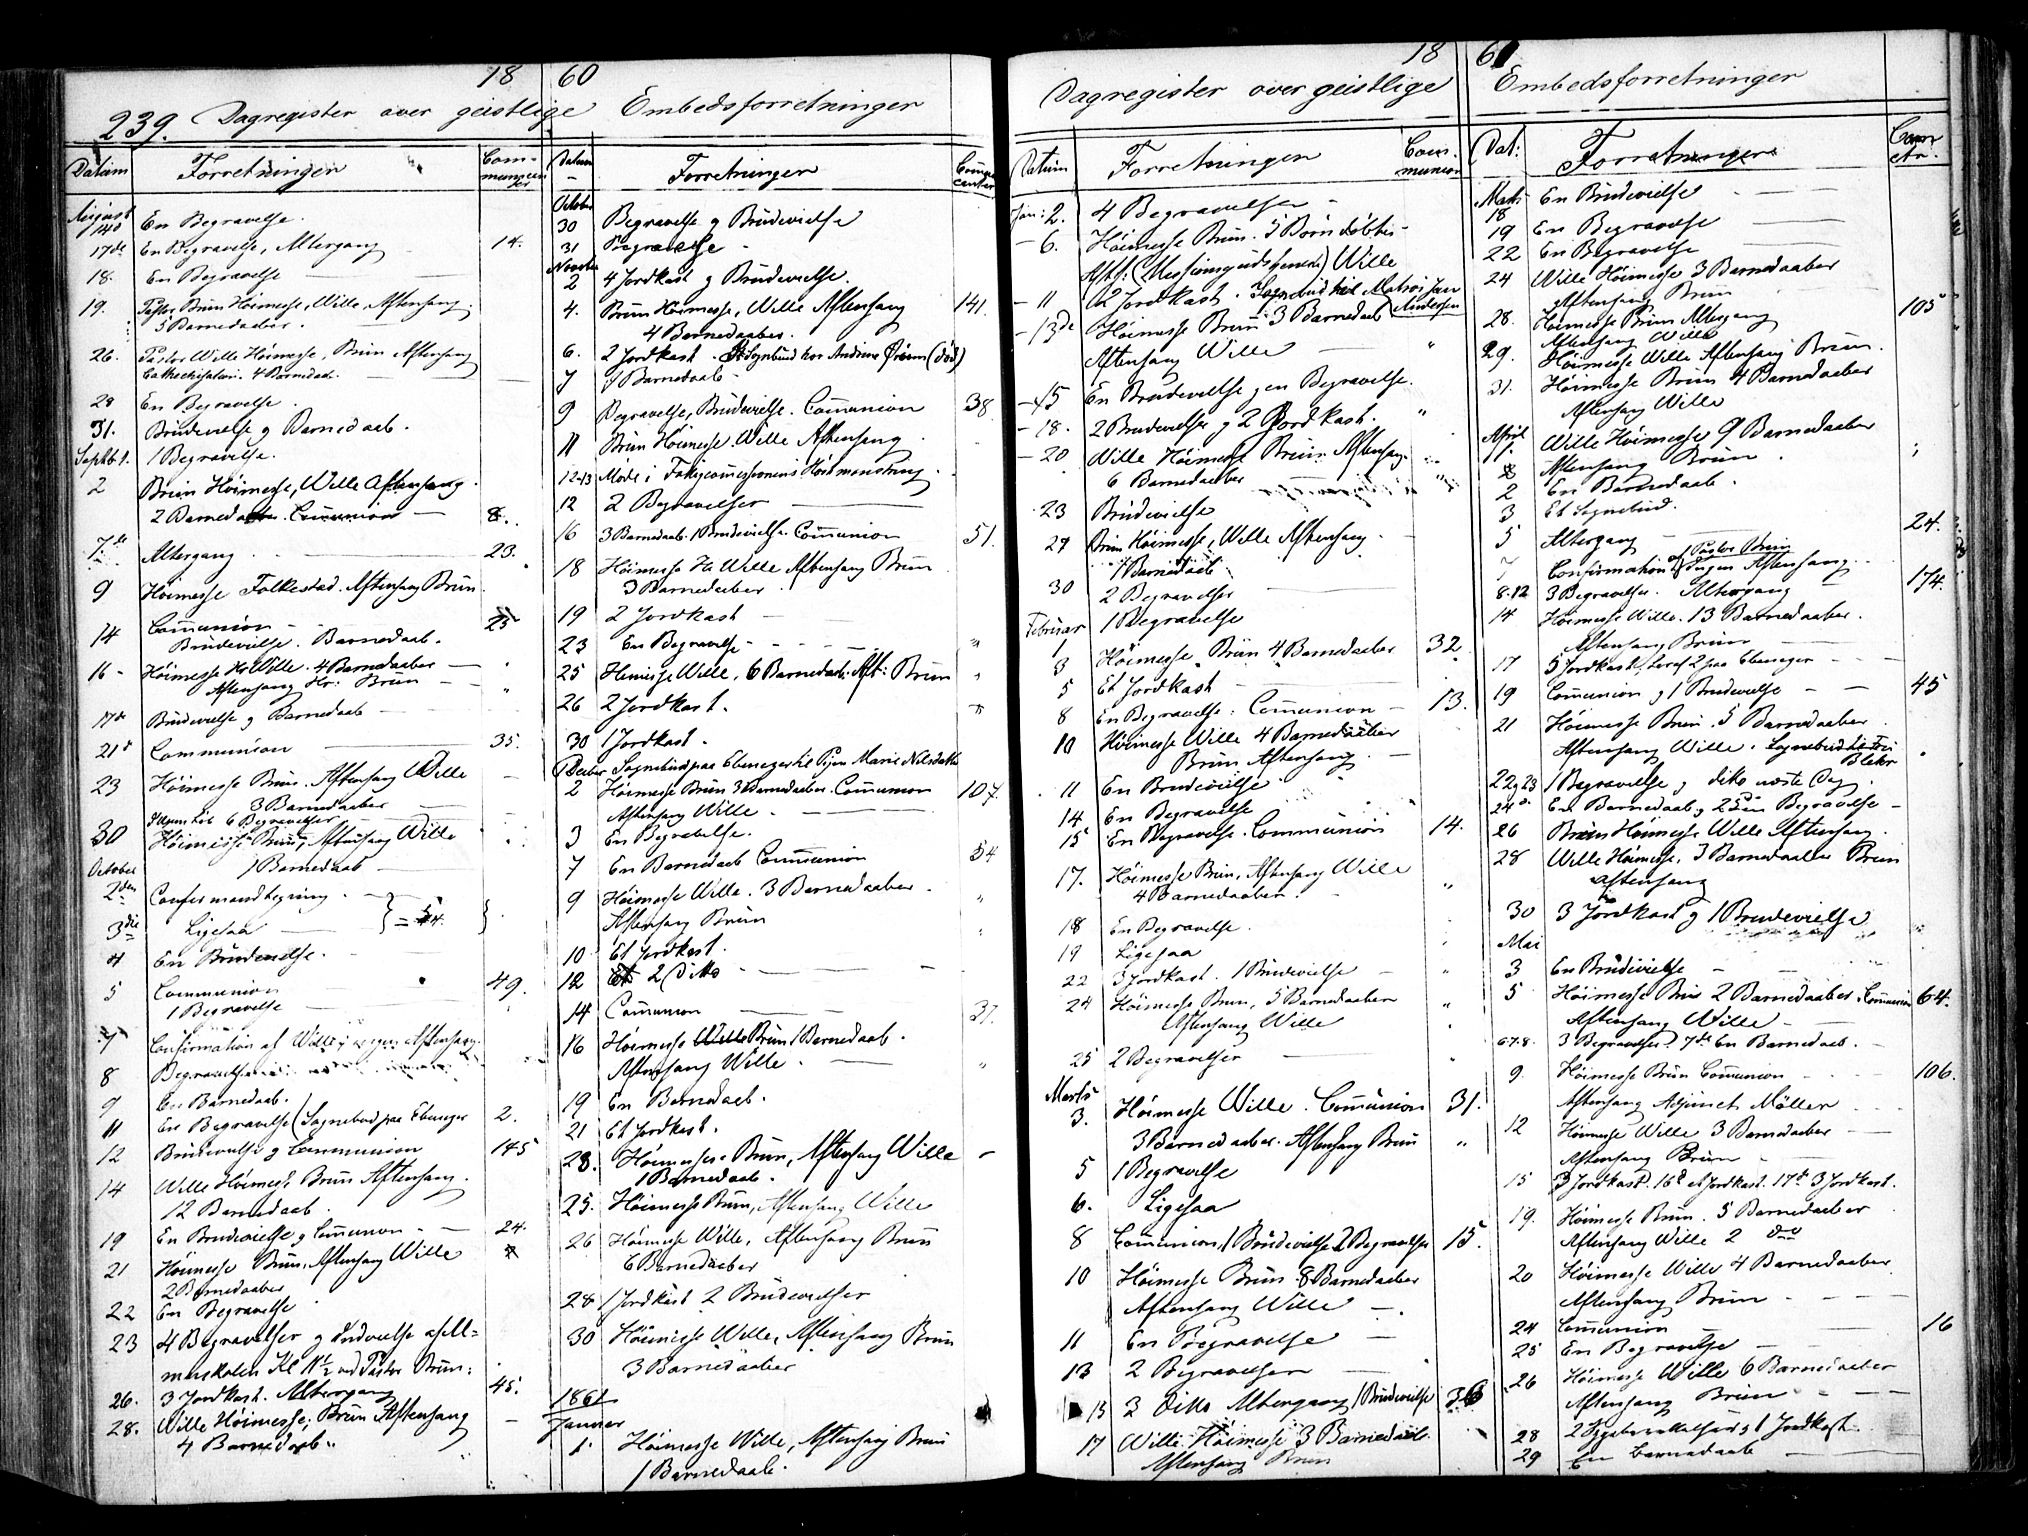 1860
239. Dagregister over geistlige Embedsforretninger
Datum Forretninger Communicenter
August
14de En Begravelse.
17de En Begravelse, Altergang 14.
18. En Begravelse
19. Pastor Brun Höimesse, Wille Aftensang.
5 Barnedaaber.
26. Pastor Wille Höimesse, Brun Aftensang
Catechisation. 4 Barnedaab.
28 En Begravelse.
31. Brudevielse og Barnedaab.
Septbr 1. 1 Begravelse.
2 Brun Höimesse, Wille Aftensang.
2 Barnedaaber. Communion 8.
7de Altergang 23.
9 Höimesse Folkestad. Aftensang Brun.
14 Communion 25
Brudevielse. Barnedaab.
16 Höimesse Hr Wille. 4 Barnedaaber
Aftensang Hr. Brun
17de Brudevielse og Barnedaab
21de Communion 35.
23 Höimesse Brun. Aftensang Wille
3 Barnedaaber
6 Begravelser
30 Höimesse Brun, Aftensang Wille
1 Barnedaab
October
2den
3die Ligesaa
4 En Brudevielse.
5 Communion 49.
1 Begravelse
7 Confirmation af Wille, Aftensang.
8 Begravelse
9 En Barnedaab.
11 En Begravelse (Sognebud paa Ebenezer 2.
12 Brudevielse og Communion 145
14 Wille Höimesse Brun Aftensang.
12 Barnedaab.
19 En Brudevielse og Communion 24.
21 Höimesse Brun, Aftensang Wille
2 Barnedaaber
22 En Begravelse
23 4 Begravelser og Indvielse af Al=
mueskolen Kl 11½ ved Pastor Brun.
26. 3 Jordkast. Altergang 45.
28. Wille Höimesse, Brun Aftensang
4 Barnedaab
Datum Forretninger Communicenter
October
30 Begravelse og Brudevielse
31 Begravelse
November
2 4 Jordkast og Brudevielse.
4. Brun Höimesse, Wille Aftensang 141.
4 Barnedaaber.
6. 2 Jordkast. Sognebud hos Andreas (död)
7 1 Barnedaab
9 Begravelse, Brudevielse. Communion 38
11 Brun Höimesse. Wille Aftensang.
12-13 Möde i
12 2 Begravelser
16 3 Barnedaab. 1 Brudevielse. Communion 51.
18 Höimesse Hr Wille Aftensang Brun
3 Barnedaaber
19 2 Jordkast
23 En Begravelse
25 Höimesse Wille, 6 Barnedaab. Aft: Brun
26 2 Jordkast.
30 1 Jordkast.
Decbr Sognebud paa Ebenezer til Pigen Marie Nilsdatter
2 Höimesse Brun 3 Barnedaaber. Communion 107.
Aftensang Wille
3 En Begravelse.
7 En Barnedaab Communion 54
9 Höimesse Wille. 3 Barnedaaber
Aftensang Brun
10 Et Jordkast.
12 2 Ditto
14 Communion 37.
16 Höimesse Brun 1 Barnedaab.
Aftensang Wille
19 En Barnedaab.
21 Et Jordkast.
23. Höimesse Brun, Aftensang Wille
1 Barnedaab.
25. Höimesse Brun, Aftensang Wille
26 Höimesse Wille, Aftensang Brun
6 Barnedaaber
28 1 Jordkast 2 Brudevielser
30 Höimesse Wille, Aftensang Brun
3 Barnedaaber
1861
Januar
1. Höimesse Wille, Aftensang Brun
1 Barnedaab.
1861
Dagregister over geistlige Embedsforretninger
Datum Forretninger Communion
Jan: 2. 4 Begravelser
6. Höimesse Brun. 5 Börn döbte
Afts: (Missionsgudstjeneste) Wille
11 Jordkast. Sognebud til Matros Jan
Andersen
13de Höimesse Brun 3 Barnedaab
Aftensang Wille
15 En Brudevielse og en Begravelse.
18. 2 Brudevielser og 2 Jordkast.
20 Wille Höimesse Brun Aftensang.
6 Barnedaaber
23 Brudevielse
27 Brun Höimesse, Wille Aftensang.
1 Barnedaab
30 2 Begravelser
Februar
1 1 Begravelse
3 Höimesse Brun 4 Barnedaaber 32
5 Et Jordkast
8 En Begravelse. Communion 13.
10 Höimesse Wille 4 Barnedaaber
Brun Aftensang.
11 En Brudevielse
14 En Begravelse
15 En Begravelse. Communion 14.
17. Höimesse Brun, Aftensang Wille
4 Barnedaaber.
18 En Begravelse.
19 Ligesaa
22 3 Jordkast. 1 Brudevielse
24 Höimesse Brun, 5 Barnedaaber
Aftensang Wille
25 2 Begravelser
Marts
3. Höimesse Wille. Communion 31.
3 Barnedaaber. Aftensang Brun
5 1 Begravelse
6. Ligesaa
8 Communion, 1 Brudevielse 2 Begravelser 15.
10 Höimesse Brun 8 Barnedaaber
Aftensang Wille
11 En Begravelse
13 2 Begravelser
15 3 Ditto Altergang 1 Brudevielse 36
17 Wille Höimesse 3 Barnedaab.
Aftensang Brun
Dat: Forretninger
Marts
18 En Brudevielse
19 En Begravelse
22 En Begravelse
24 Wille Höimesse 3 Barnedaaber
Aftensang Brun
28. Höimesse Brun Altergang 105
Aftensang Wille
29. Höimesse Wille Aftensang Brun.
31. Höimesse Brun 4 Barnedaaber
Aftensang Wille
April
1. Wille Höimesse 9 Barnedaaber
Aftensang Brun.
2 En Barnedaab.
3 Et Sognebud.
5 Altergang 24.
7 Confirmation af Pastor Brun Ingen Aftensang.
8.12 3 Begravelser. Altergang 174.
14 Höimesse Wille. 13 Barnedaaber.
Aftensang Brun
17 5 Jordkast, deraf 2 paa Ebenezer
19 Communion og 1 Brudevielse 45
21 Höimesse Brun. 5 Barnedaaber
Aftensang Wille. Sognebud
22 og 23 1 Begravelse og ditto næste Dag.
24de En Barnedaab, og Begravelse
26 Brun Höimesse Wille Aftensang.
28 Wille Höimesse, 3 Barnedaaber Brun
Aftensang
30 3 Jordkast og 1 Brudevielse
Mai
3 En Brudevielse
5 Höimesse Brun 2 Barnedaaber. Communion 64.
Aftensang Wille
6.7.8. 3 Begravelser. 7de En Barnedaab.
9. Höimesse Brun Communion 106.
Aftensang Adjunct Möller
12 Höimesse Wille 3 Barnedaaber
Aftensang Brun
15 3 Jordkast. 16de et Jordkast. 17de 3 Jordkast.
19. Höimesse Brun. 5 Barnedaaber
Aftensang Wille 2 do
20 Höimesse Wille 4 Barnedaaber
Aftensang Brun
24 Communion 16
25 En Begravelse
26 Höimesse Wille 6 Barnedaaber
Aftensang Brun
28 1 Jordkast
29 En Barnedaab